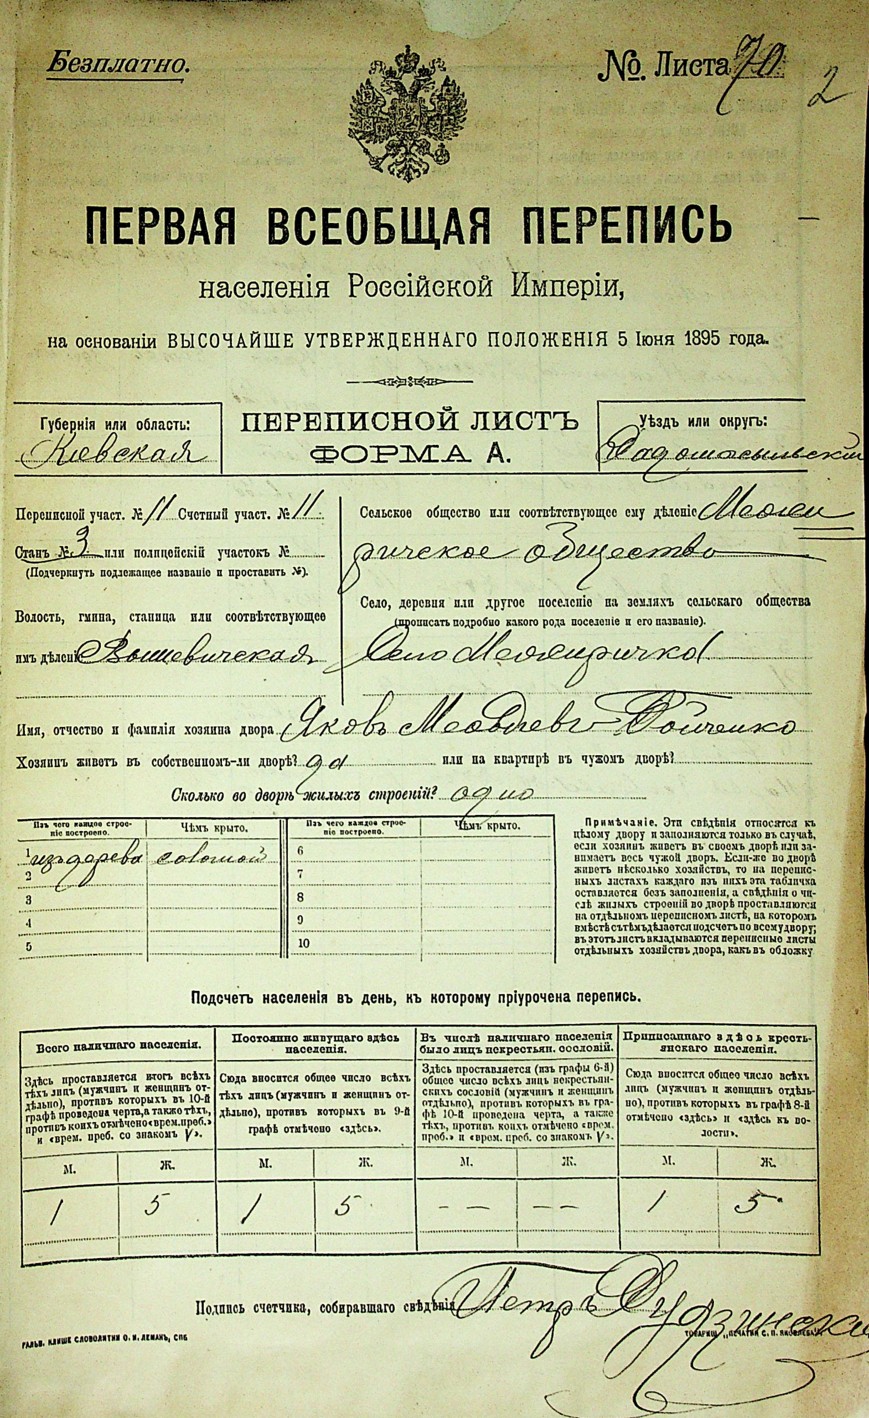 Безплатно.
№ Листа 70
2
ПЕРВАЯ ВСЕОБЩАЯ ПЕРЕПИСЬ
населенія Россійской Имперіи,
на основаніи ВЫСОЧАЙШЕ УТВЕРЖДЕННАГО ПОЛОЖЕНІЯ 5 Іюня 1895 года.
Губернія или область:
Кіевская
ПЕРЕПИСНОЙ ЛИСТЪ
ФОРМА А.
Уѣздъ или округъ:
Радомысльскій
Переписной участ. № 11 Счетный участ. № 11
Станъ № 3 или полицейскій участокъ №
(Подчеркнуть подлежащее названіе и проставить №).
Волость, гмина, станица или соотвѣтствующее
имъ дѣленіе Вышевичская
Сельское общество или соотвѣтствующее ему дѣленіе Межи
ричское общество
Село, деревня или другое поселеніе на земляхъ сельскаго общества
(прописать подробно какого рода поселеніе и его названіе).
Село Межиричка
Имя, отчество и фамилія хозяина двора Яковъ Бойченко
Хозяинъ живетъ въ собственномъ-ли дворѣ? да или на квартирѣ въ чужомъ дворѣ?
Сколько во дворѣ жилыхъ строеній? одно
Изъ чего каждое строе-
ніе построено.
Чѣмъ крыто.
1 изъ дерева соломой
2
3
4
5
Изъ чего каждое строе-
ніе построено.
Чѣмъ крыто.
6
7
8
9
10
Примѣчаніе. Эти свѣдѣнія относятся къ
цѣлому двору и заполняются только въ случаѣ,
если хозяинъ живетъ въ своемъ дворѣ или за-
нимаетъ весь чужой дворъ. Если-же во дворѣ
живетъ нѣсколько хозяйствъ, то на перепис-
ныхъ листахъ каждаго изъ нихъ эта табличка
оставляется безъ заполненія, а свѣдѣнія о чи-
слѣ жилыхъ строеній во дворѣ проставляются
на отдѣльномъ переписномъ листѣ, на которомъ
вмѣстѣ съ тѣмъ дѣлается подсчетъ по всему двору;
въ этотъ листъ вкладываются переписные листы
отдѣльныхъ хозяйствъ двора, какъ въ обложку
Подсчетъ населенія въ день, къ которому пріурочена перепись.
Всего наличнаго населенія.
Здѣсь проставляется итогъ всѣхъ
тѣхъ лицъ (мужчинъ и женщинъ от-
дѣльно), противъ которыхъ въ 10-й
графѣ проведена черта, а также тѣхъ,
противъ коихъ отмѣчено «врем. преб.»
и «врем. преб. со знакомъ V».
М. Ж.
1 5
Постоянно живущаго здѣсь
населенія.
Сюда вносится общее число всѣхъ
тѣхъ лицъ (мужчинъ и женщинъ от-
дѣльно), противъ которыхъ въ 9-й
графѣ отмѣчено «здѣсь».
М. Ж.
1 5
Въ числѣ наличнаго населенія
было лицъ некрестьян. сословій.
Здѣсь проставляется (изъ графы 6-й)
общее число всѣхъ лицъ некрестьян-
скихъ сословій (мужчинъ и женщинъ
отдѣльно), противъ которыхъ въ гра-
фѣ 10-й проведена черта, а также
тѣхъ, противъ коихъ отмѣчено «врем.
преб.» и «врем. преб. со знакомъ V».
М. Ж.
-- --
Приписаннаго здѣсь кресть-
янскаго населенія.
Сюда вносится общее число всѣхъ
лицъ (мужчинъ и женщинъ отдѣль-
но), противъ которыхъ въ графѣ 8-й
отмѣчено «здѣсь» и «здѣсь къ во-
лости».
М. Ж.
1 5
Подпись счетчика, собиравшаго свѣдѣнія Петръ
ГАЛЬВ. КЛИШЕ СЛОВОЛИТНИ О. И. ЛЕМАНЪ, СПБ
ТОВАРИЩ. „ПЕЧАТНЯ С. П. ЯКОВЛЕВА".